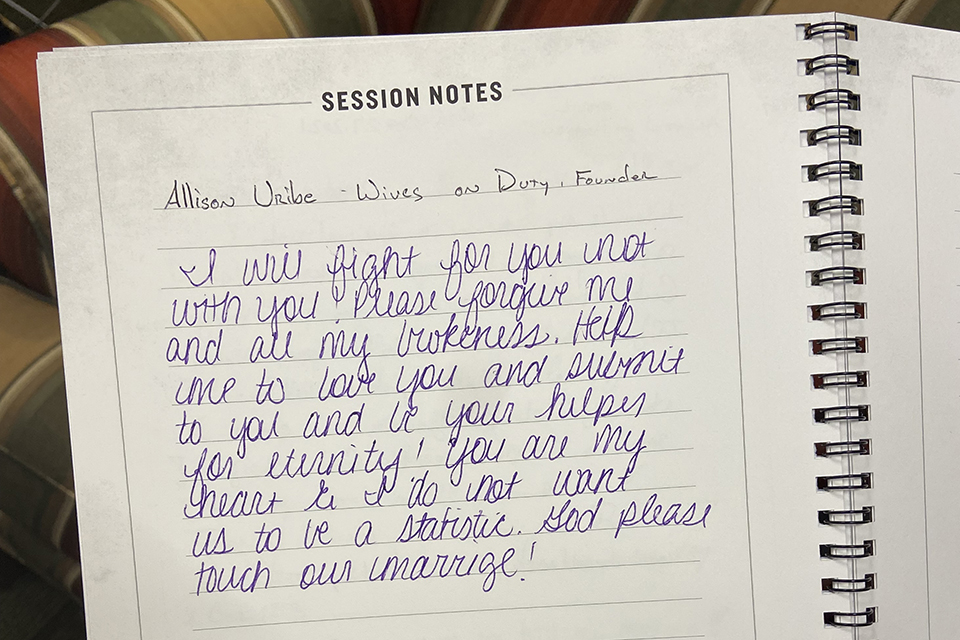 SESSION NOTES
Allison Uribe - Wives on Duty, Founder
I will fight for you not
with you! Please forgive me
and all my brokeness. Help
me to love you and submit
to you and be your helper
for eternity! You are my
heart & I do not want
us to be a statistic. God please
touch our marrige!